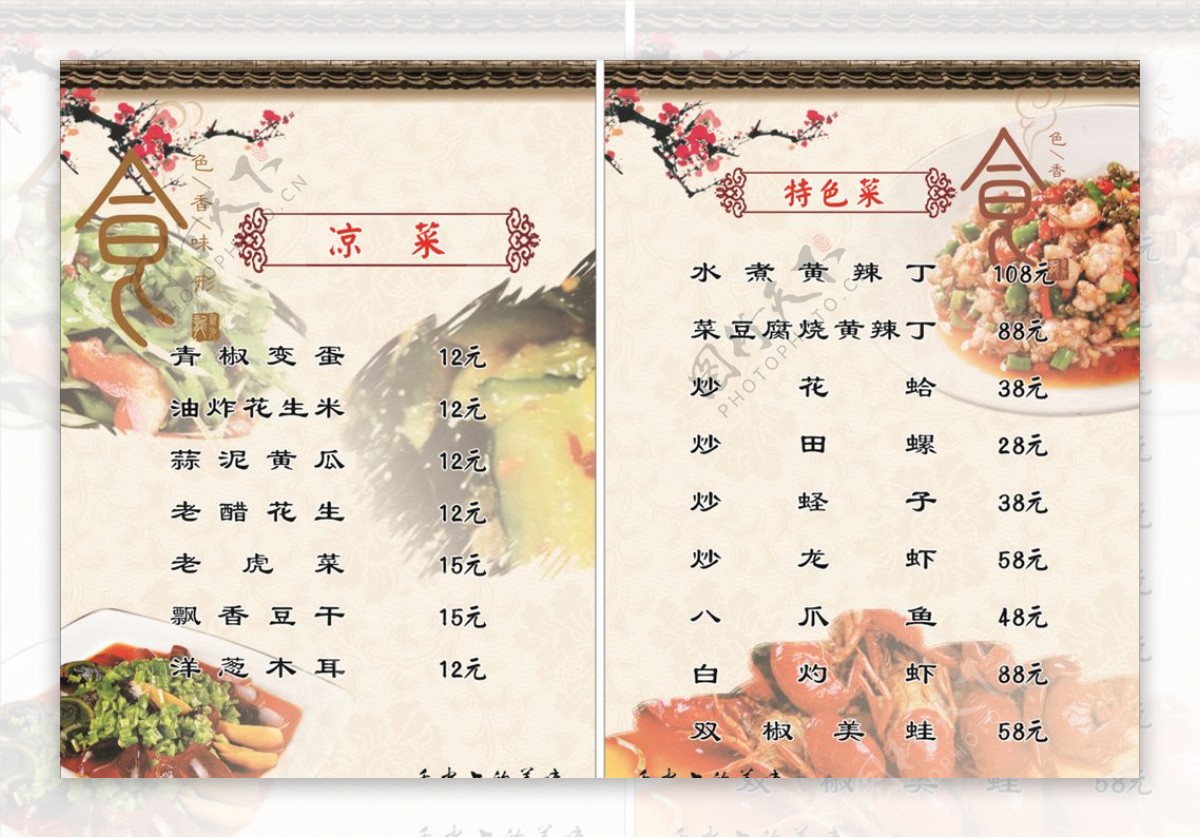 食
色/香/味/形
凉 菜
青椒变蛋 12元
油炸花生米 12元
蒜泥黄瓜 12元
老醋花生 12元
老虎菜 15元
飘香豆干 15元
洋葱木耳 12元
食
色/香
特色菜
水煮黄辣丁 108元
菜豆腐烧黄辣丁 88元
炒花蛤 38元
炒田螺 28元
炒蛏子 38元
炒龙虾 58元
八爪鱼 48元
白灼虾 88元
双椒美蛙 58元
PHOTOPHOTO.CN